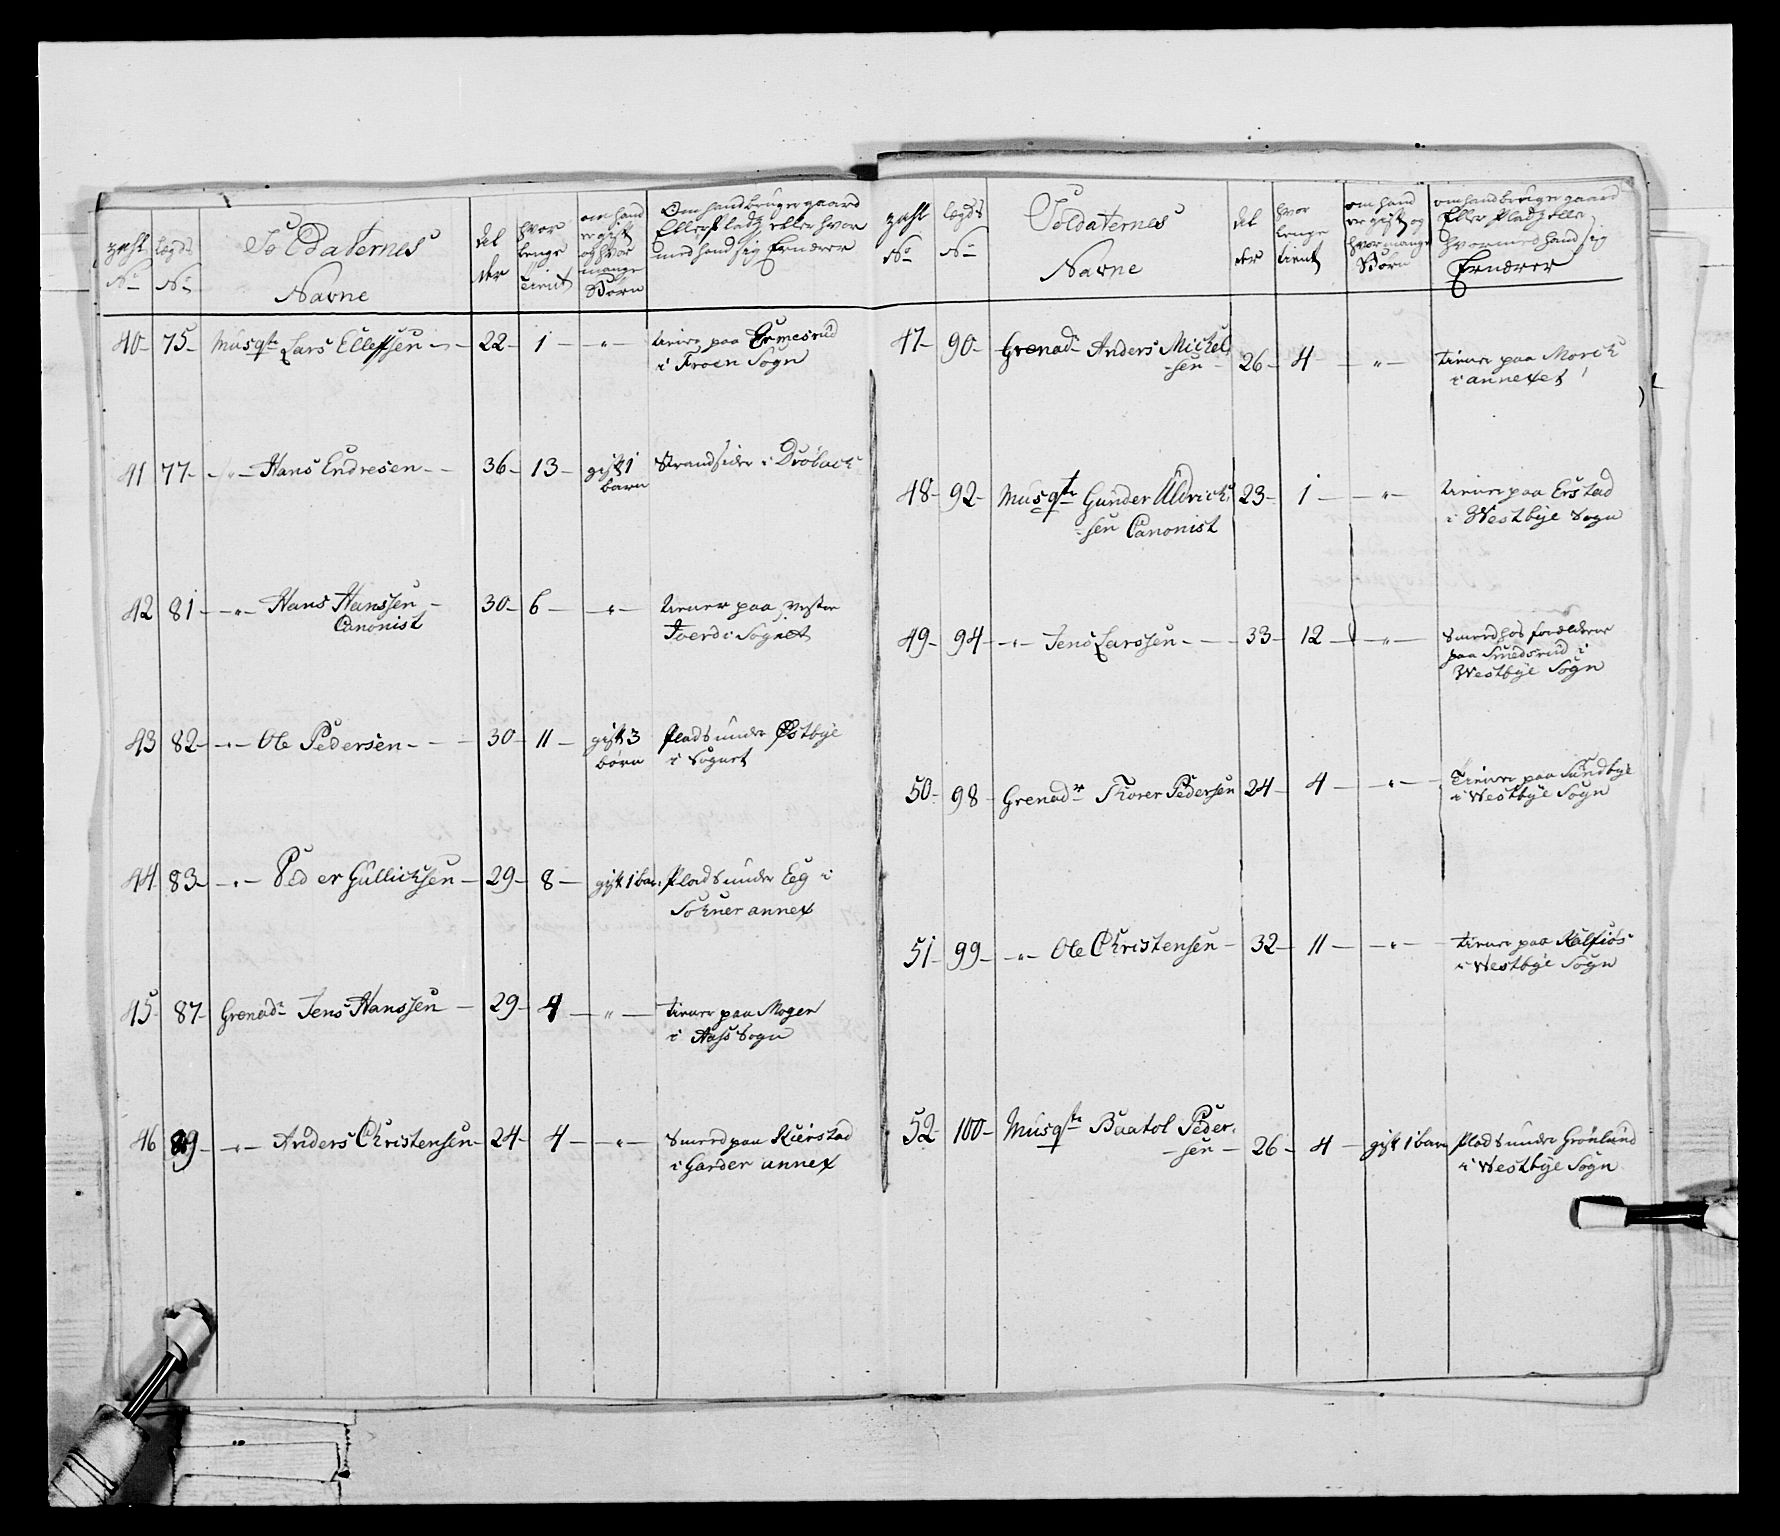 zahl No
lægds No
Soldaternes
Navne
del
der
hvor
lenge
tient
om hand
er gift
og hvor
mange
Børn
Om hand bruger gaard
Eller Pladz eller hvor
med hand sig Ernærer
40 - 75 - Musqtr Lars Elleffsen - 22 - 1 - " - tiener paa Ermesrud
i Froen Sogn
41 77 - " - Hans Endresen - 36 - 13 - gift 1 Strandsider i Drøback
barn
42 81 - " - Hans Hanssen - 30 - 6 - " - tiener paa Vestre
Canonist
i Sognet
43 82 - " - Ole Pedersen - 30 - 11 - gift 3 Plads under Østbye
børn i Sognet
44 83 - " - Peder Gullichsen - 29 - 8 - gift 1 bar. Plads under Eeg i
Sohner annex
45 - 87 - Grenadr Jens Hanssen - 29 - 4 - " - tiener paa Moger
i Aass Sogn
46 89 - " - Anders Christensen - 24 - 4 - " - paa Kierstad
i Garder annex
zahl No
lægds No
Soldaternes
Navne
del
der
hvor
lenge
tient
om hand
er gift og
hvor mange
Børn
om hand bruger gaard
Eller Pladz eller
hvormed hand sig
Ernærer
47 - 90 - Grenadr Anders Michel
- sen - 26 - 4 - " - tiener paa Morck
i annexet
48 - 92 - Musqtr Gunder Uldrich 23 - 1 - " - tiener paa Erstad
- sen Canonist i Westbye Sogn
49 - 94 - " - Jens Larssen - 33 - 12 - " - hos forældrene
paa Smedsrud i
Westbye Sogn
50 - 98 - Grenadr Thorer Pedersen 24 - 4 - " - Tiener paa Sundbye
i Westbye Sogn
51 - 99 - " - Ole Christensen - 32 - 11 - " - tiener paa Kalfiøs
i Westbye Sogn
52 - 100 - Musqtr Baatol Peder.
- sen - 26 - 4 - gift 1 barn Plads under Grønlund
i Westbye Sogn